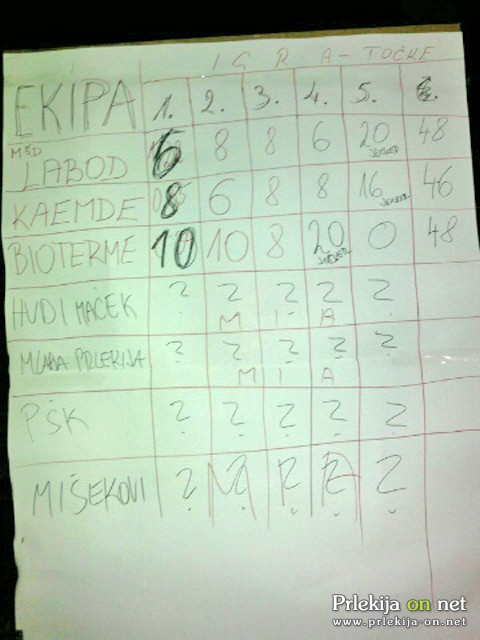 IGRA - TOČKE
EKIPA 1. 2. 3. 4. 5. 6.
MŠD LABOD 6 8 8 6 20 JOKER 48
KAEMDE 8 6 8 8 16 JOKER 46
BIOTERME 10 10 8 20 JOKER 0 48
HUDI MAČEK ? ? ? ? ?
M I A
MLADA PRLEKIJA ? ? ? ? ?
M I A
PŠK ? ? ? ? ?
MIŠEKOVI ? ? ? ? ?
Prlekija on net
www.prlekija-on.net